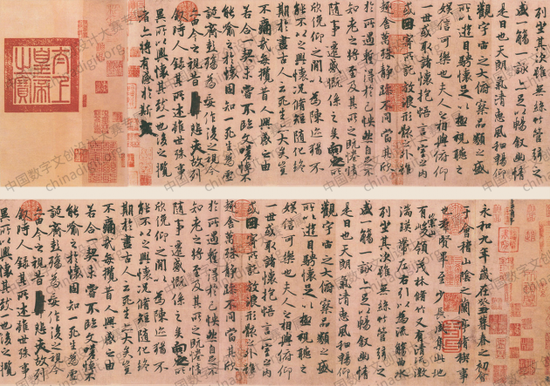 列坐其次雖無絲竹管弦之
盛一觴一詠亦足以暢敘幽情
是日也天朗氣清惠風和暢仰
觀宇宙之大俯察品類之盛
所以遊目騁懷足以極視聽之
娛信可樂也夫人之相與俯仰
一世或取諸懷抱悟言一室之內
或因寄所託放浪形骸之外雖
趣舍萬殊靜躁不同當其欣
於所遇暫得於己怏然自足不
知老之將至及其所之既惓情
隨事遷感慨係之矣向之所
欣俛仰之閒以為陳跡猶不
能不以之興懷況脩短隨化終
期於盡古人云死生亦大矣豈
不痛哉每攬昔人興感之由
若合一契未嘗不臨文嗟悼不
能喻之於懷固知一死生為虛
誕齊彭殤為妄作後之視今
亦由今之視昔悲夫故列
敘時人錄其所述雖世殊事
異所以興懷其致一也後之攬
者亦將有感於斯文
太上皇帝之寶
永和九年歲在癸丑暮春之初會
于會稽山陰之蘭亭脩稧事
也群賢畢至少長咸集此地
有崇山峻領茂林脩竹又有清流激
湍暎帶左右引以為流觴曲水
列坐其次雖無絲竹管弦之
盛一觴一詠亦足以暢敘幽情
是日也天朗氣清惠風和暢仰
觀宇宙之大俯察品類之盛
所以遊目騁懷足以極視聽之
娛信可樂也夫人之相與俯仰
一世或取諸懷抱悟言一室之內
或因寄所託放浪形骸之外雖
趣舍萬殊靜躁不同當其欣
於所遇暫得於己怏然自足不
知老之將至及其所之既惓情
隨事遷感慨係之矣向之所
欣俛仰之閒以為陳跡猶不
能不以之興懷況脩短隨化終
期於盡古人云死生亦大矣豈
不痛哉每攬昔人興感之由
若合一契未嘗不臨文嗟悼不
能喻之於懷固知一死生為虛
誕齊彭殤為妄作後之視今
亦由今之視昔悲夫故列
敘時人錄其所述雖世殊事
異所以興懷其致一也後之攬